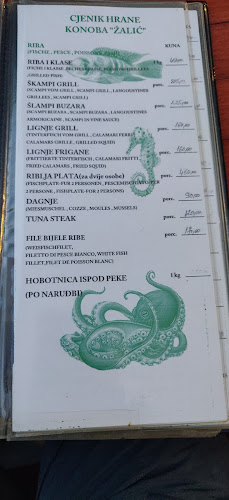 CJENIK HRANE
KONOBA "ŽALIĆ"
RIBA KUNA
(FISCHE , PESCE , POISSONS , FISH)
RIBA I KLASE 1 kg
(GRILLED FISH)
ŠKAMPI GRILL porc.
(SCAMPI VOM GRILL , SCAMPI , LANGOUSTINES
GRILLEES , SCAMPI GRILL)
ŠLAMPI BUZARA porc.
(SCAMPI BUZARA , SCAMPI BUZARA , LANGOUSTINES
ARMORICAINE , SCAMPI IN VINE SAUCE)
LIGNJE GRILL porc.
(TINTENFISCH VOM GRILL , CALAMARI FERRI
CALAMARS GRILLE , GRILLED SQUID)
LIGNJE FRIGANE porc.
(FRITTIERTE TINTEFISCH , CALAMARI FRITTI
FRIED CALAMARS , FRIED SQUID)
RIBLJA PLATA(za dvije osobe) porc.
(FISCHPLATE-FUR 2 PERSONEN , PESCEMISCH PER
2 PERSONE , FISHPLATE-FOR 2 PERSONS)
DAGNJE porc.
(MIESMUSCHEL , COZZE , MOULES , MUSSELS)
TUNA STEAK porc.
FILE BIJELE RIBE porc.
(WEISFISCHFILET,
FILETTO DI PESCE BIANCO, WHITE FISH
FILLET,FILET DE POISSON BLANC)
HOBOTNICA ISPOD PEKE 1 kg
(PO NARUĐBI)